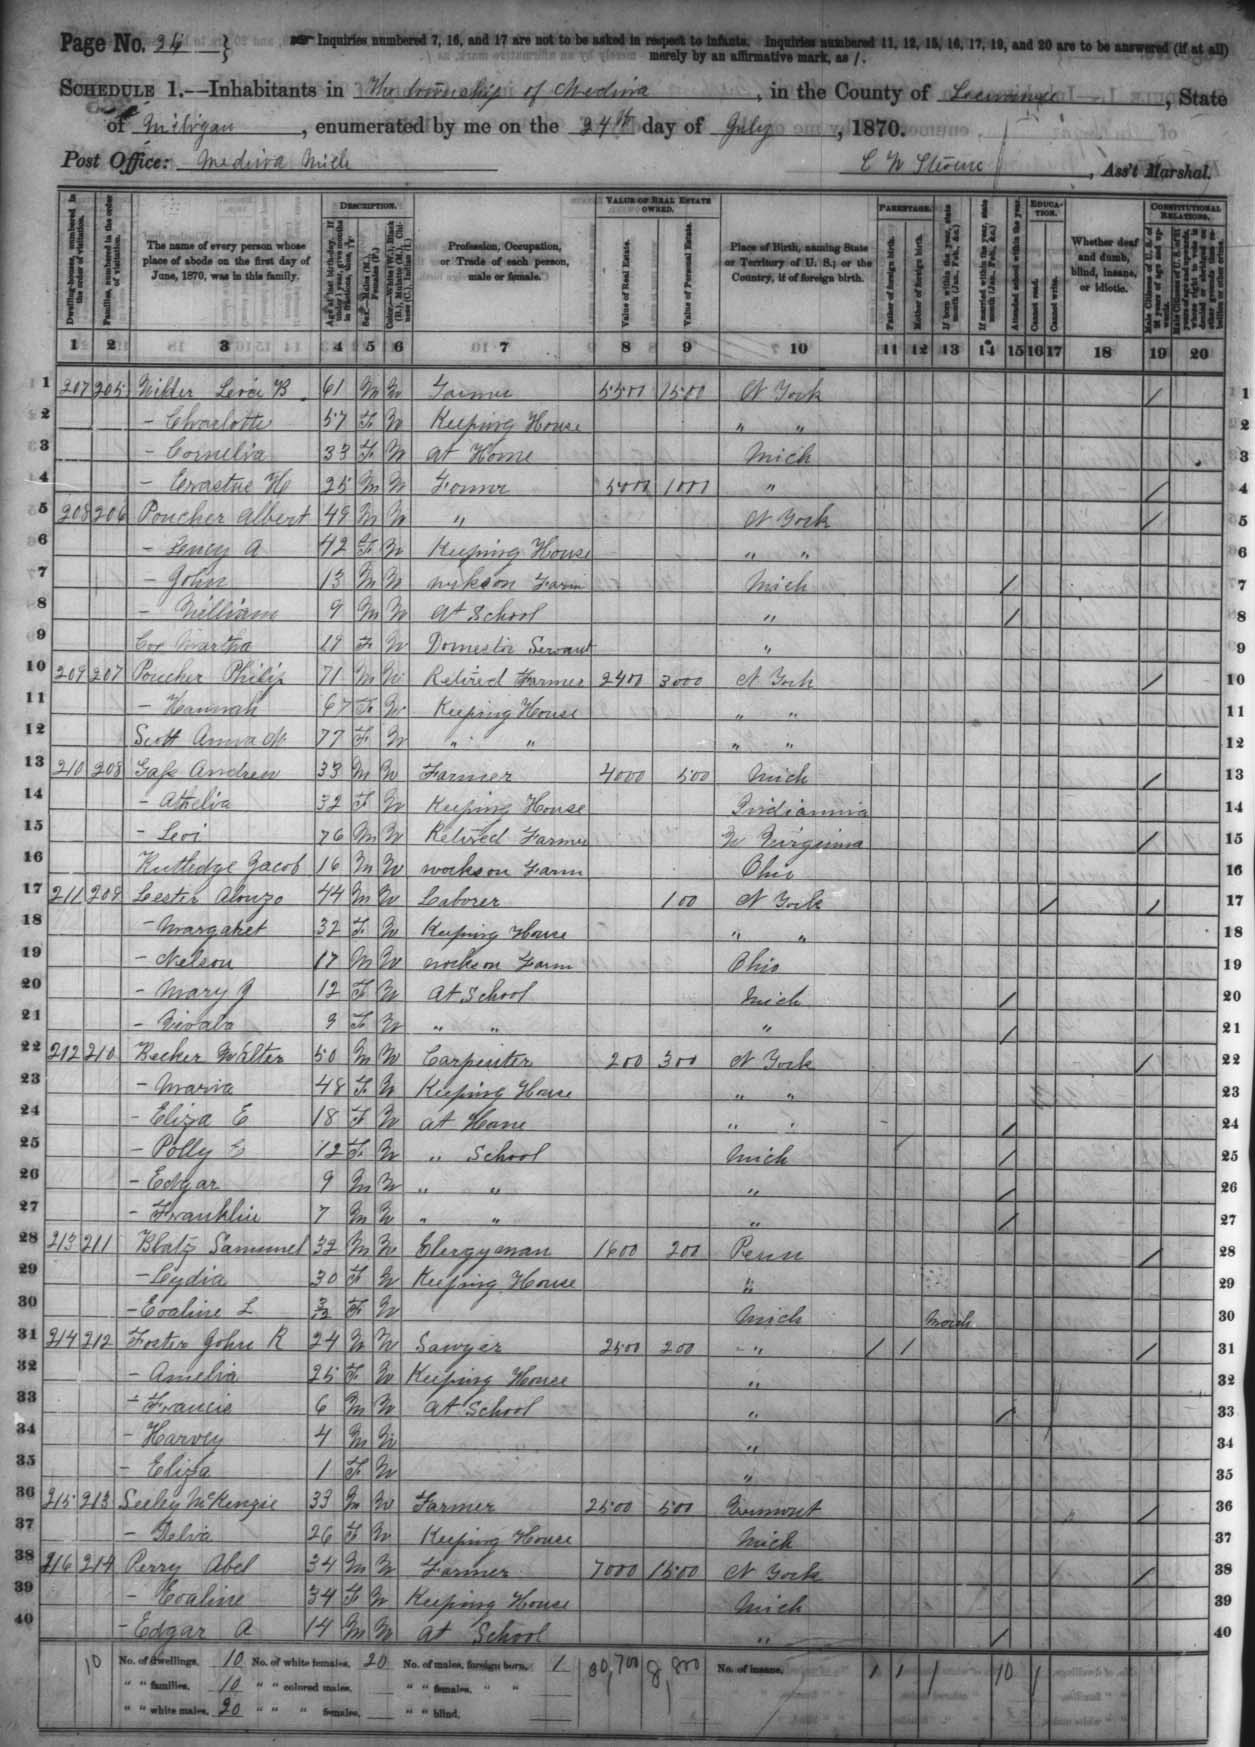 Page No. 26 } Inquiries numbered 7, 16, and 17 are not to be asked in respect to infants. Inquiries numbered 11, 12, 15, 16, 17, 19, and 20 are to be answered (if at all)
merely by an affirmative mark, as /.
SCHEDULE 1.—Inhabitants in The township of Medina, in the County of, State
of Michigan, enumerated by me on the 24th day of July, 1870.
Post Office: Medina Mich C W Stevens, Ass't Marshal.
Dwelling-houses, numbered in the order of visitation.
Families, numbered in the order of visitation.
The name of every person whose place of abode on the first day of June, 1870, was in this family.
DESCRIPTION.
Age at last birth-day. If under 1 year, give months in fractions, thus, 3/12.
Sex.—Males (M.), Females (F.)
Color.—White (W.), Black (B.), Mulatto (M.), Chinese (C.), Indian (I.)
Profession, Occupation, or Trade of each person, male or female.
VALUE OF REAL ESTATE OWNED.
Value of Real Estate.
Value of Personal Estate.
Place of Birth, naming State or Territory of U. S.; or the Country, if of foreign birth.
PARENTAGE.
Father of foreign birth.
Mother of foreign birth.
If born within the year, state month (Jan., Feb., &c.)
If married within the year, state month (Jan., Feb., &c.)
EDUCATION.
Attended school within the year.
Cannot read.
Cannot write.
Whether deaf and dumb, blind, insane, or idiotic.
CONSTITUTIONAL RELATIONS.
Male Citizens of U. S. of 21 years of age and upwards.
1 2 3 4 5 6 7 8 9 10 11 12 13 14 15 16 17 18 19 20
1 207 205 Wilder Levi B. 61 M W Farmer 5500 1500 N York / 1
2 – Charlotte 57 F W Keeping House " " 2
3 – Cornelia 33 F W At Home Mich 3
4 – Erastus H 25 M W Farmer 5400 1000 " / 4
5 208 206 Poucher Albert 49 M W " N York / 5
6 – Lucy A 42 F W Keeping House " " 6
7 – John 13 M W works on Farm Mich / 7
8 – William 9 M W At School " / 8
9 Cox Martha 19 F W Domestic Servant " 9
10 209 207 Poucher Philip 71 M W Retired Farmer 2400 3000 N York / 10
11 – Hannah 67 F W Keeping House " " 11
12 Scott Anna M 77 F W " " " " 12
13 210 208 Gass Andrew 33 M W Farmer 4000 500 Mich / 13
14 – Athelia 32 F W Keeping House Indianna 14
15 – Levi 76 M W Retired Farmer W Virginia / 15
16 Rutledge Jacob 16 M W works on Farm Ohio 16
17 211 209 Lester Alonzo 44 M W Laborer 100 N York / / 17
18 – Margaret 32 F W Keeping House " " 18
19 – Nelson 17 M W works on Farm Ohio 19
20 – Mary J 12 F W At School Mich / 20
21 – 9 F W " " " / 21
22 212 210 Becker Walter 50 M W Carpenter 200 300 N York / 22
23 – Maria 48 F W Keeping House " " 23
24 – Eliza E 18 F W At Home " " / 24
25 – Polly E 12 F W " School Mich / 25
26 – Edgar 9 M W " " " / 26
27 – Franklin 7 M W " " " / 27
28 213 211 Blatz Sammuel 32 M W Clergyman 1600 200 Penn / 28
29 – Lydia 30 F W Keeping House " 29
30 – Evaline L 3/12 F W Mich March 30
31 214 212 Foster John R 24 M W Sawyer 2500 200 " / / / 31
32 – Amelia 25 F W Keeping House " 32
33 – Francis 6 M W At School " / 33
34 – Harvey 4 M W " 34
35 – Eliza 1 F W " 35
36 215 213 Seeley McKenzie 33 M W Farmer 2500 500 Vermont / 36
37 – Delia 26 F W Keeping House Mich 37
38 216 214 Perry Abel 34 M W Farmer 7000 1500 N York / 38
39 – Evaline 34 F W Keeping House Mich 39
40 – Edgar A 14 M W At School " / 40
10 No. of dwellings, 10 No. of white females, 20 No. of males, foreign born, 1 30,700 8,800 No. of insane, 1 1 1 10 1
" " families, 10 " " colored males, " " females, " "
" " white males, 20 " " " females, " " blind,